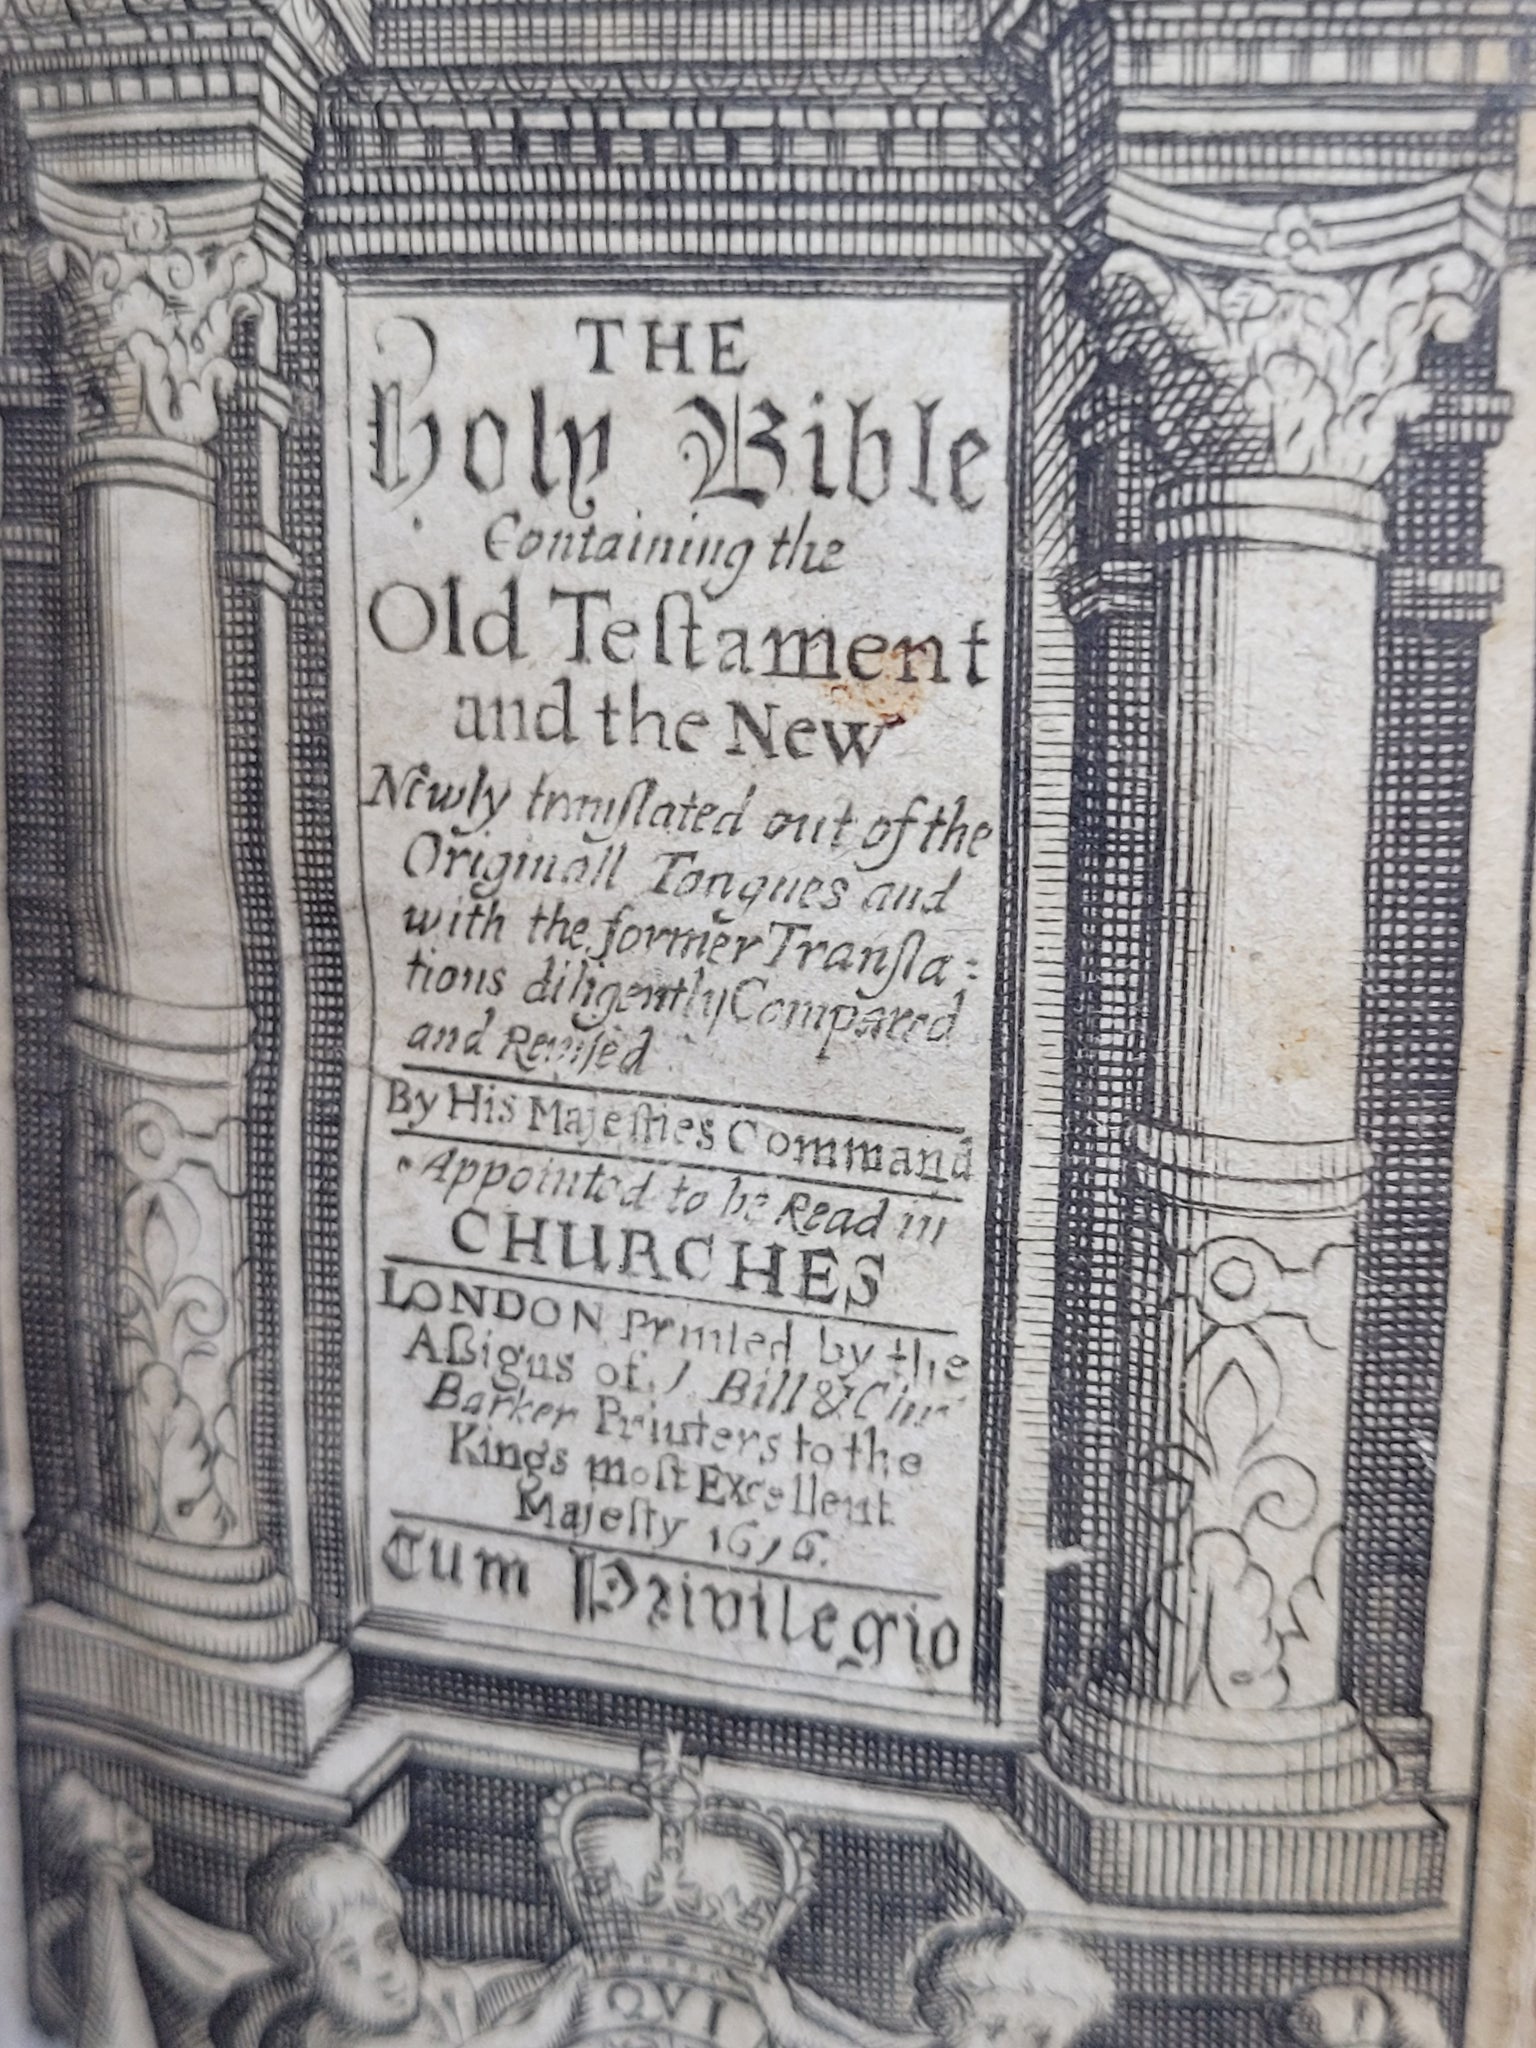 THE
Holy Bible
Containing the
Old Teſtament
and the New
Newly tranſlated out of the
Originall Tongues and
with the former Tranſla:
tions diligently Compared
and Reviſed
By His Majeſties Command
Appointed to be Read in
CHURCHES
LONDON Printed by the
Aßigns of J Bill & Chr
Barker Printers to the
Kings moſt Excellent
Majeſty 1676.
Cum Privilegio
QVI